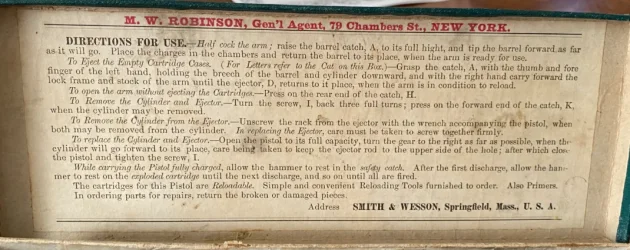 M. W. ROBINSON, Gen'l Agent, 79 Chambers St., NEW YORK.
DIRECTIONS FOR USE.—Half cock the arm; raise the barrel catch, A, to its full hight, and tip the barrel forward as far
as it will go. Place the charges in the chambers and return the barrel to its place, when the arm is ready for use.
To Eject the Empty Cartridge Cases. (For Letters refer to the Cut on this Box.)—Grasp the catch, A, with the thumb and fore
finger of the left hand, holding the breech of the barrel and cylinder downward, and with the right hand carry forward the
lock frame and stock of the arm until the ejector, D, returns to it place, when the arm is in condition to reload.
To open the arm without ejecting the Cartridges.—Press on the rear end of the catch, H.
To Remove the Cylinder and Ejector.—Turn the screw, I, back three full turns; press on the forward end of the catch, K,
when the cylinder may be removed.
To Remove the Cylinder from the Ejector.—Unscrew the rack from the ejector with the wrench accompanying the pistol, when
both may be removed from the cylinder. In replacing the Ejector, care must be taken to screw together firmly.
To replace the Cylinder and Ejector.—Open the pistol to its full capacity, turn the gear to the right as far as possible, when the
cylinder will go forward to its place, care being taken to keep the ejector rod to the upper side of the hole; after which close
the pistol and tighten the screw, I.
While carrying the Pistol fully charged, allow the hammer to rest in the safety catch. After the first discharge, allow the ham-
mer to rest on the exploded cartridge until the next discharge, and so on until all are fired.
The cartridges for this Pistol are Reloadable. Simple and convenient Reloading Tools furnished to order. Also Primers.
In ordering parts for repairs, return the broken or damaged pieces.
Address SMITH & WESSON, Springfield, Mass., U. S. A.